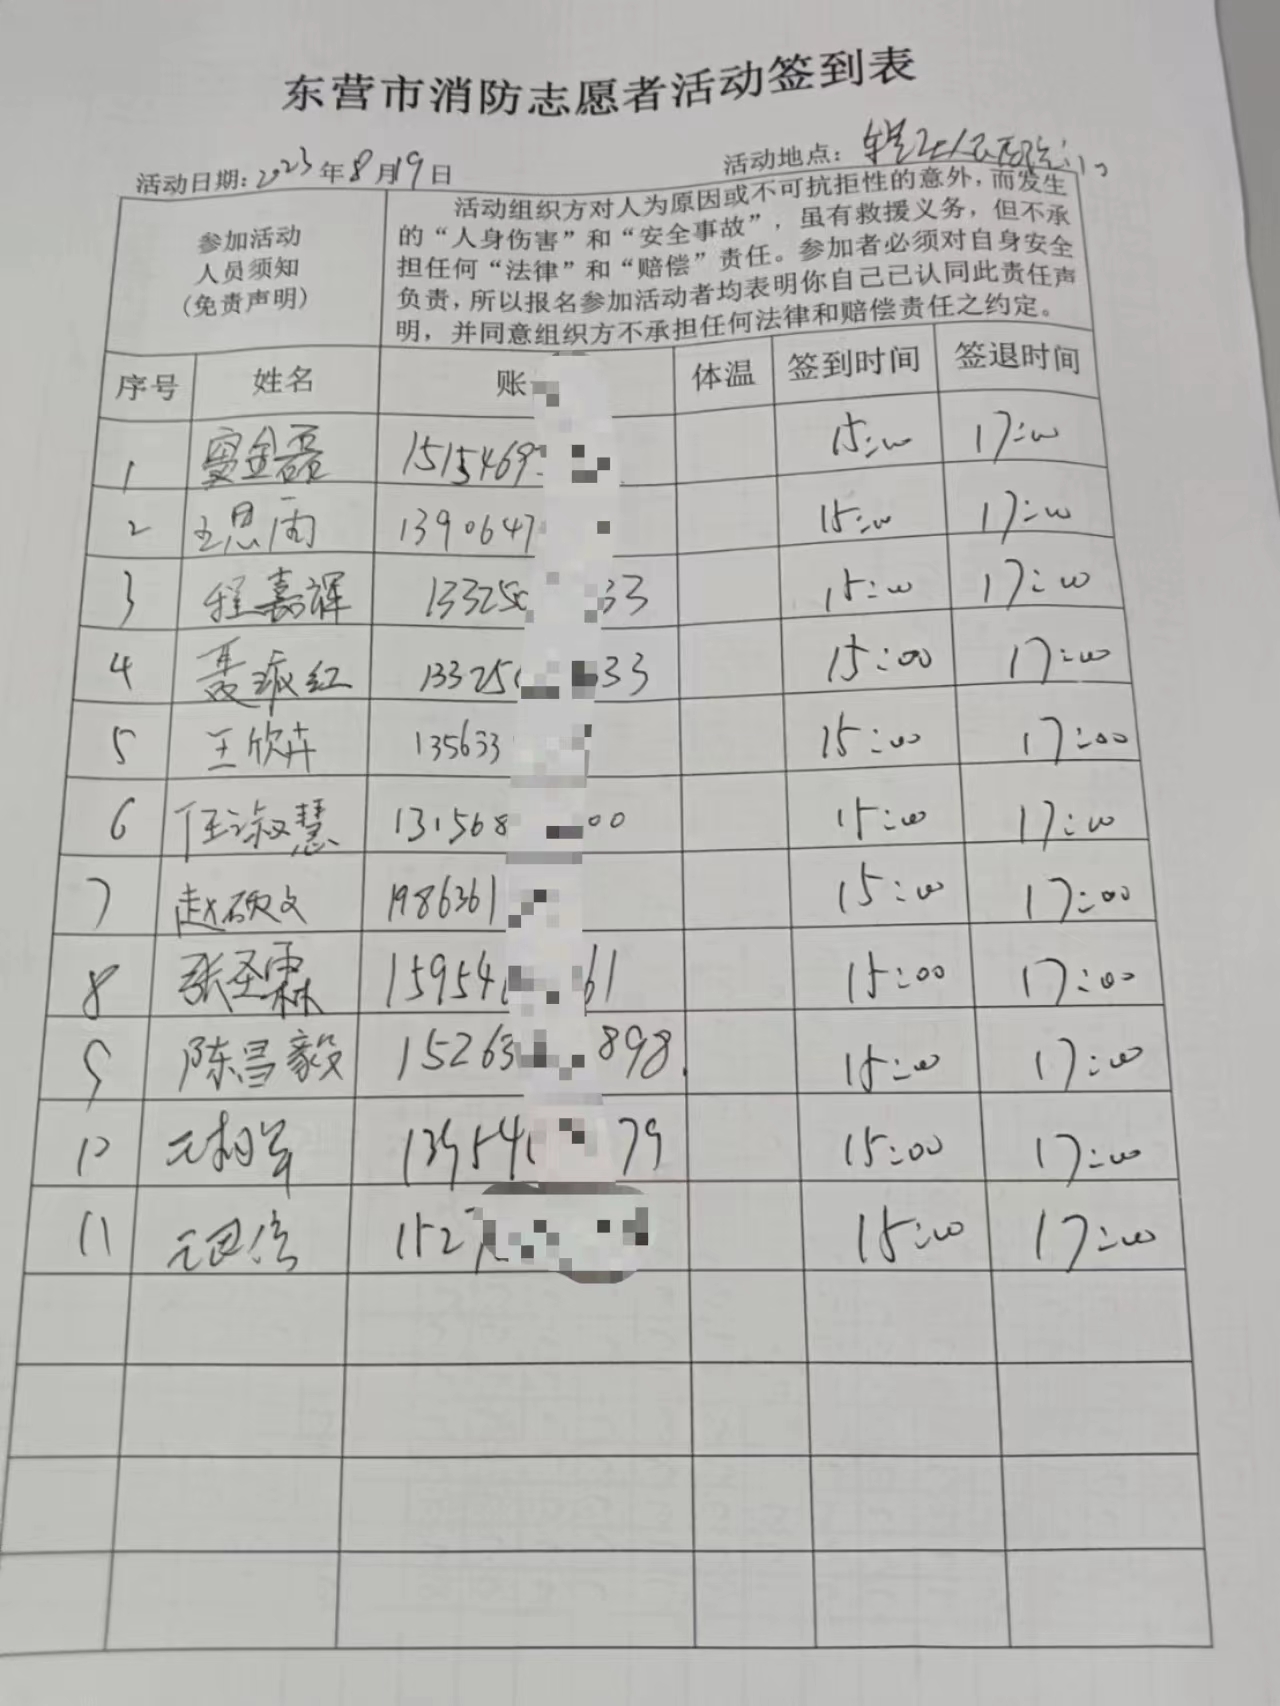 东营市消防志愿者活动签到表
活动日期：2023年8月19日 活动地点：
参加活动
人员须知
（免责声明）
活动组织方对人为原因或不可抗拒性的意外，而发生
的“人身伤害”和“安全事故”，虽有救援义务，但不承
担任何“法律”和“赔偿”责任。参加者必须对自身安全
负责，所以报名参加活动者均表明你自己已认同此责任声
明，并同意组织方不承担任何法律和赔偿责任之约定。
序号 姓名 账 体温 签到时间 签退时间
1 窦金磊 1515469 15:00 17:00
2 王思雨 1390647 15:00 17:00
3 程嘉辉 13325 33 15:00 17:00
4 聂琢红 13325 33 15:00 17:00
5 王欣卉 135633 15:00 17:00
6 任淑慧 131568 00 15:00 17:00
7 赵硕文 1986361 15:00 17:00
8 张圣霖 15954 61 15:00 17:00
9 陈昌毅 15263 898. 15:00 17:00
10 13954 79 15:00 17:00
11 152 15:00 17:00